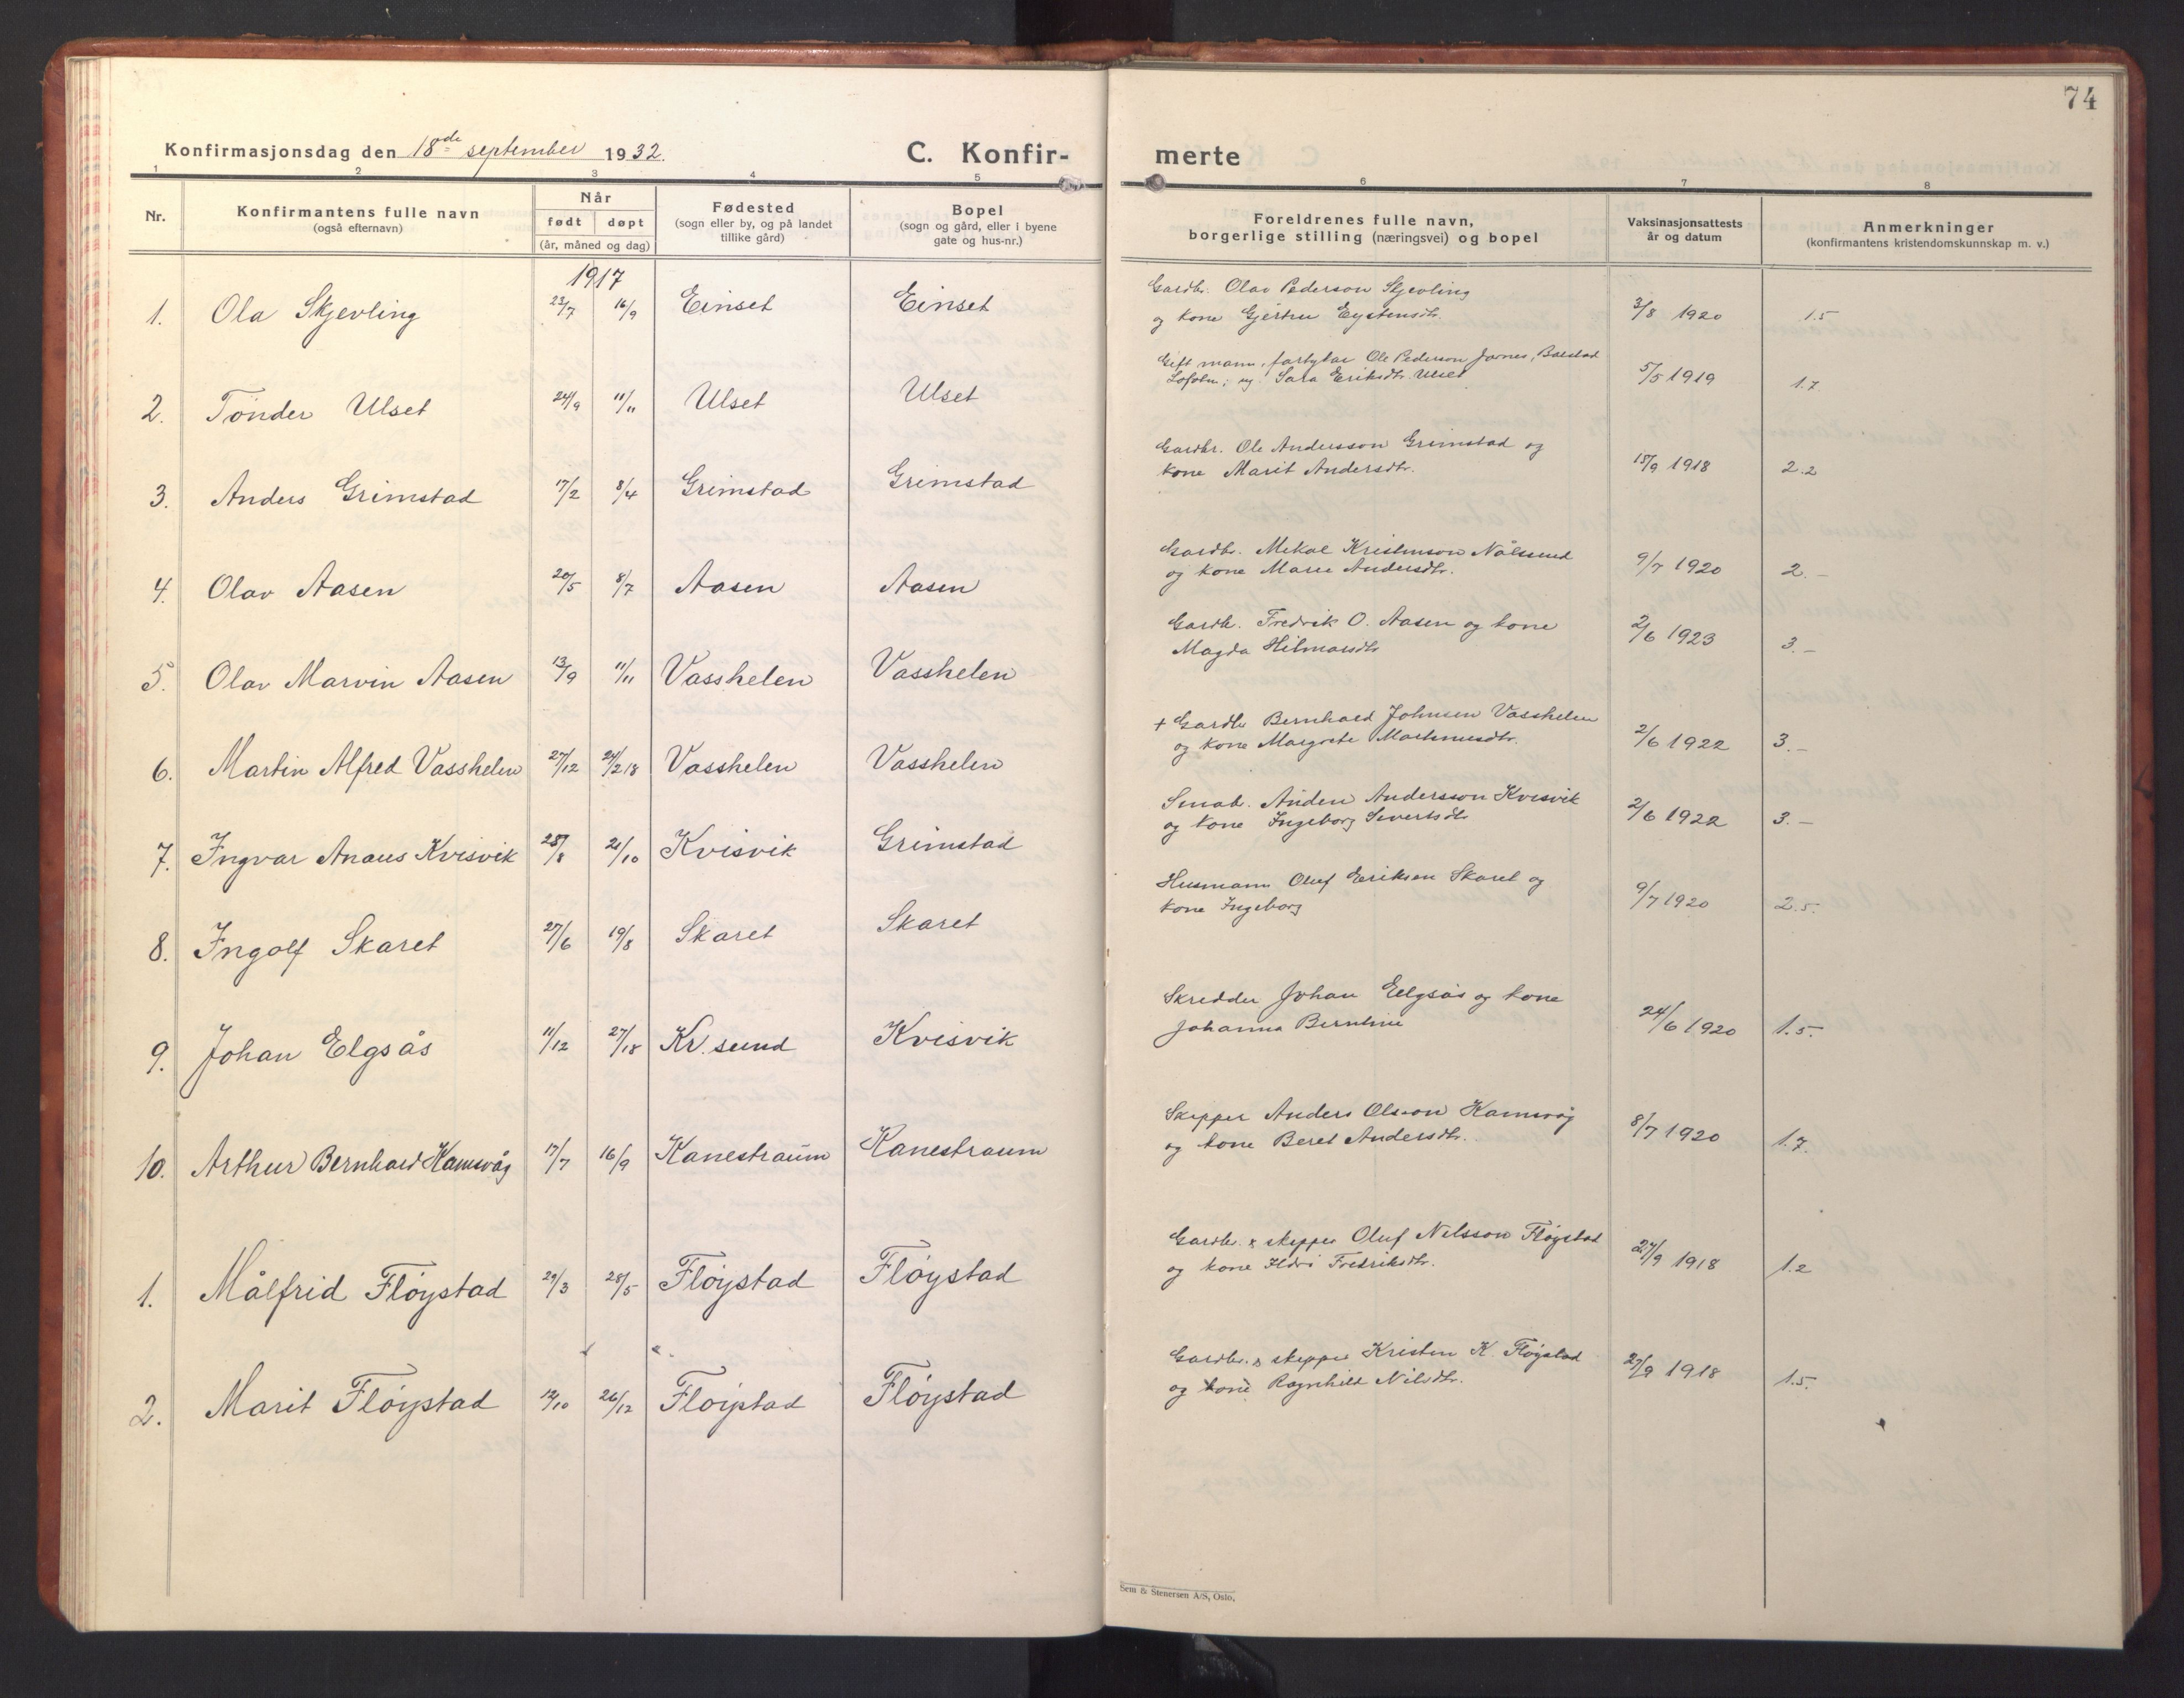 74
Konfirmasjonsdag den 18de september 1932.
C. Konfir-
merte
1 2 3 4 5 6 7 8
Nr.
Konfirmantens fulle navn
(også efternavn)
Når
født døpt
(år, måned og dag)
Fødested
(sogn eller by, og på landet
tillike gård)
Bopel
(sogn og gård, eller i byene
gate og hus-nr.)
Foreldrenes fulle navn,
borgerlige stilling (næringsvei) og bopel
Vaksinasjonsattests
år og datum
Anmerkninger
(konfirmantens kristendomskunnskap m. v.)
1917
1. Ola Skjevling 23/7 16/9 Einset Einset
Gardbr. Olav Pederson Skjevling
og kone Gjertru Eystensdtr. 3/8 1920 1.5
2. Tønder Ulset 24/9 11/11 Ulset Ulset
Gift mann, Ole Pederson Jarnes, Balstad
Lofoten; ug. Sara Eriksdtr. Ulset 5/5 1919 1.7
3. Anders Grimstad 17/2 8/4 Grimstad Grimstad
Gardbr. Ole Andersson Grimstad og
kone Marit Andersdtr. 15/9 1918 2.2
4. Olav Aasen 20/5 8/7 Aasen Aasen
Gardbr. Mekal Kristenson Nålsund
og kone Marie Andersdtr. 9/7 1920 2.-
5. Olav Marvin Aasen 13/9 11/11 Vasshelen Vasshelen
Gardbr. Fredrik O. Aasen og kone
Magda Hilmarsdtr 2/6 1923 3.-
6. Martin Alfred Vasshelen 27/12 24/2 18 Vasshelen Vasshelen
+ Gardbr Bernhard Johnsen Vasshelen
og kone Margrete Martinusdtr. 2/6 1922 3.-
7. Ingvar Anaus Kvisvik 28/8 21/10 Kvisvik Grimstad
Smab. Anden Andersson Kvisvik
og kone Ingeborg Sivertsdtr 2/6 1922 3.-
8. Ingolf Skaret 27/6 19/8 Skaret Skaret
Husmann Oluf Eriksen Skaret og
kone Ingeborg 9/7 1920 2.5.
9. Johan Elgsås 11/12 27/18 Kr.sund Kvisvik
Skredder Johan Elgsås og kone
Johanna Berntine 24/6 1920 1.5.
10. Arthur Bernhard Hamsvåg 17/7 16/9 Kanestraum Kanestraum
Skipper Anders Olsson Hamsvåg
og kone Beret Andersdtr. 8/7 1920 1.7.
1. Målfrid Fløystad 29/3 28/5 Fløystad Fløystad
Gardbr. & skipper Oluf Nilsson Fløystad
og kone Ildri Fredriksdtr. 27/9 1918 1.2
2. Marit Fløystad 12/10 26/12 Fløystad Fløystad
Gardbr. & skipper Kristen K. Fløystad
og kone Ragnhild Nilsdtr. 27/9 1918 1.5.
Sem & Stenersen A/S, Oslo.